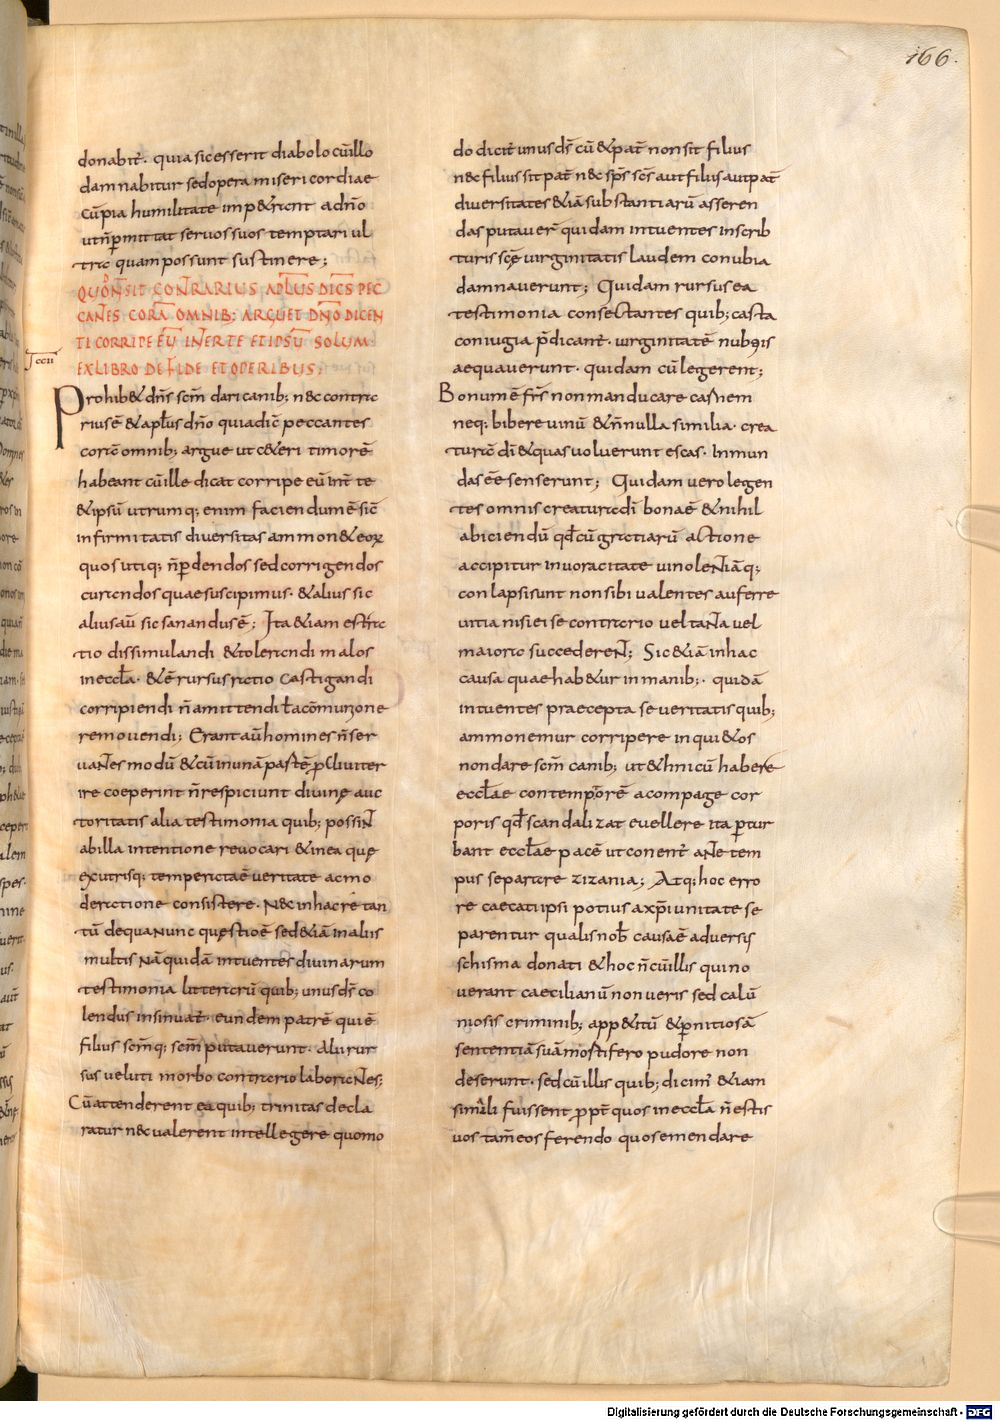 166.
donabit̄. quia sic esserit diabolo cū illo
damnabitur sed opera misericordiae
cū pia humilitate impetrent a dn̄o
ut n̄ ꝑmittat servos suos temptari ul
tra quam possunt sustinere;
QUOM̄ N̄ SIT CONTRARIUS APL̄US DICS PEC
CANTES CORĀ OMNIB; ARGUE ET DN̄O DICEN
TI CORRIPE EŪ INTER TE ET IPSŪ SOLUM
EX LIBRO DE FIDE ET OPERIBUS;
ccii
Prohib& dn̄s sc̄m dari canib; nec contra
rius ē & apl̄us dn̄o qui a dic̄ peccantes
corā omnib; argue ut ceteri timorē
habeant cū ille dicat corripe eū int̄ te
& ipsū utrumq; enim faciendum ē sic̄
infirmitatis diversitas ammonet eoꝝ
quos utiq; n̄ ꝑdendos sed corrigendos
curandos quae suscipimus. & alius sic
alius aū sic sanandus ē; Ita &iam est ra
tio dissimulandi & tolerandi malos
in eccl̄a. & ē rursus ratio castigandi
corripiendi n̄ amittendi t̄ a cōmunione
removendi; Errant aū homines n̄ ser
vantes modū & cū in unā partē ꝓcliviter
ire coeperint n̄ respiciunt divinę auc
toritatis alia testimonia quib; possint
ab illa intentione revocari & in ea quę
ex utrisq; temperata ē veritate ac mo
deratione consistere. Nec in hac re tan
tū de qua nunc quęstio ē sed &iā in aliis
multis Nā quidā intuentes divinarum
testimonia litterarū quib; unus ds̄ co
lendus insinuat̄. eundem patrē qui ē
filius sc̄mq; sp̄m putaverunt. Alii rur
sus veluti morbo contrario laborantes;
Cū attenderent ea quib; trinitas decla
ratur nec valerent intellegere quomo
do dicit̄ unus ds̄ cū & pat̄ non sit filius
nec filius sit pat̄ nec sp̄s sc̄s aut filius aut pat̄
diversitates &iā substantiarū asseren
das putaver̄ quidam intuentes in scrib
turis sc̄ę virginitatis laudem conubia
damnaverunt; Quidam rursus ea
testimonia consectantes quib; casta
coniugia p̄dicant̄. virginitatē nubtiis
aequaverunt. quidam cū legerent;
Bonum ē fr̄s non manducare carnem
neq; bibere vinū & n̄nulla similia. crea
turā dī & quas voluerunt escas. Inmun
das eē senserunt; Quidam vero legen
tes omnis creatura dī bona ē & nihil
abiciendū qđ cū gratiarū actione
accipitur in voracitate vinolentiāq;
conlapsi sunt non sibi valentes auferre
vitia nisi ei se contrario vel tanta vel
maiora succederent; Sic &iā in hac
causa quae hab&ur in manib;. quidā
intuentes praecepta severitatis quib;
ammonemur corripere inqui&os
non dare sc̄m canib; ut &hnicū habere
eccl̄ae contemptorē a compage cor
poris qđ scandalizat evellere ita ꝑtur
bant eccl̄ae pacē ut conent̄ ante tem
pus separare zizania; Atq; hoc erro
re caecati ipsi potius a xp̄i unitate se
parentur qualis nob̄ causa ē adversis
schisma donati & hoc n̄ cū illis qui no
verant caecilianū non veris sed calū
niosis criminib; appetitū & ꝑnitiosā
sententiā suā mostifero pudore non
deserunt. sed cū illis quib; dicim̄ &iam
si mali fuissent ꝓpt̄ quos in eccl̄a n̄ estis
vos tam̄ eos ferendo quos emendare
Digitalisierung gefördert durch die Deutsche Forschungsgemeinschaft - DFG